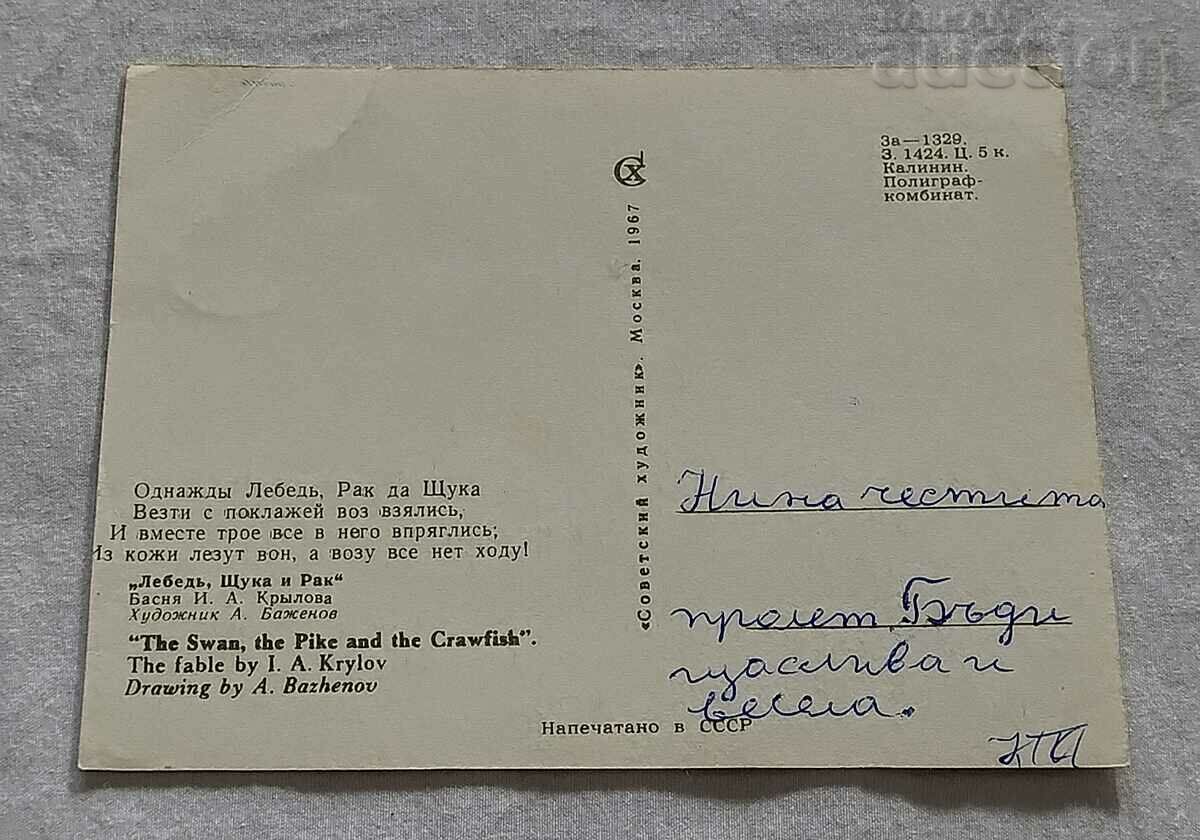 auction
За—1329.
З. 1424. Ц. 5 к.
Калинин.
Полиграф-
комбинат.
СХ
«Советский художник». Москва. 1967
Однажды Лебедь, Рак да Щука
Везти с поклажей воз взялись,
И вместе трое все в него впряглись;
Из кожи лезут вон, а возу все нет ходу!
„Лебедь, Щука и Рак“
Басня И. А. Крылова
Художник А. Баженов
“The Swan, the Pike and the Crawfish”.
The fable by I. A. Krylov
Drawing by A. Bazhenov
Напечатано в СССР
Нина честита
пролет. Бъди
щастлива и
весела.